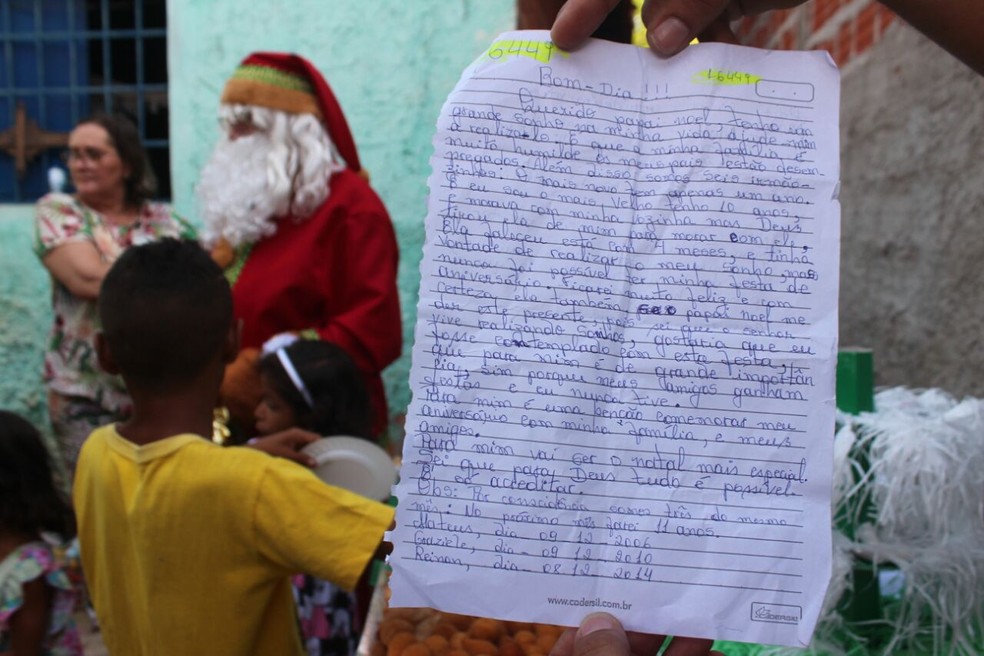 6449
16449
Bom-Dia!!!
Querido papai noel, tenho um
grande sonho na minha vida, ajude-nam
a realiza-lo. É que a minha família é
muito humilde os meus pais estão desem
pregados. Além disso somos seis irmão-
zinhos: O mais novo tem apenas um ano.
E eu sou o mais velho tenho 10 anos,
E morava com minha vozinha mas Deus
tirou ela de mim para morar com ele.
Ela faleceu está com 4 meses, e tinha
vontade de realizar o meu sonho, mas
nunca foi possível ter minha festa de
aniversário. Ficarei muito feliz e com
certeza ela também se o papai noel me
der este presente, pois sei que o senhor
vive realizando sonhos, gostaria que eu
fosse contemplado com esta festa,
que para mim é de grande importân
cia, sim porque meus amigos ganham
festas e eu nunca tive.
Para mim é uma benção comemorar meu
aniversário com minha família, e meus
amigos.
Para mim vai ser o natal mais especial.
Sei que para Deus tudo é possível.
É só acreditar.
Obs: Por consciência somos três do mesmo
mês. No próximo mês farei 11 anos.
Mateus, dia 09.12-2006
Graziele, dia-09 12 2010
Reinan, dia-08.12 2014
www.codersil.com.br